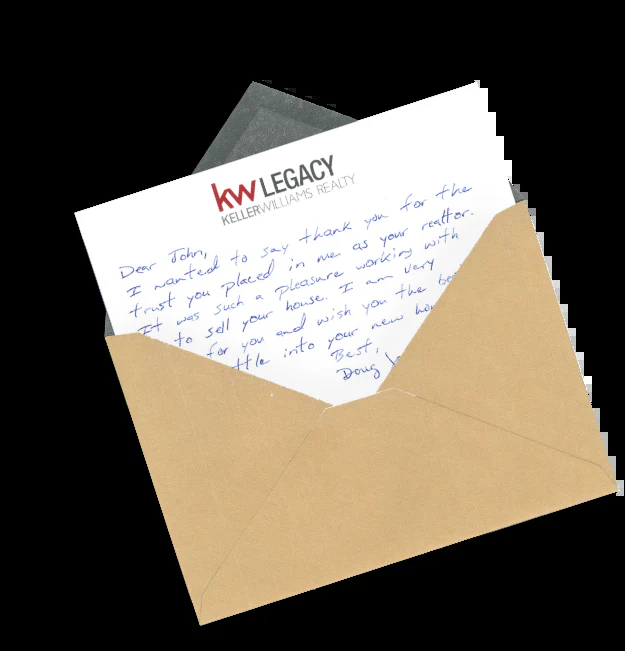 kw LEGACY
KELLERWILLIAMS REALTY
Dear John,
I wanted to say thank you for the
trust you placed in me as your realtor.
It was such a pleasure working with
to sell your house. I am very
for you and wish you the
into your new
Best,
Doug